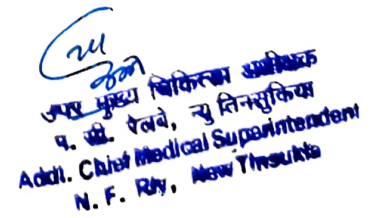 अपर मुख्य चिकित्सा अधीक्षक
पू. सी. रेलवे, न्यु तिनसुकिया
Addl. Chief Medical Superintendent
N. F. Rly, New Tinsukia